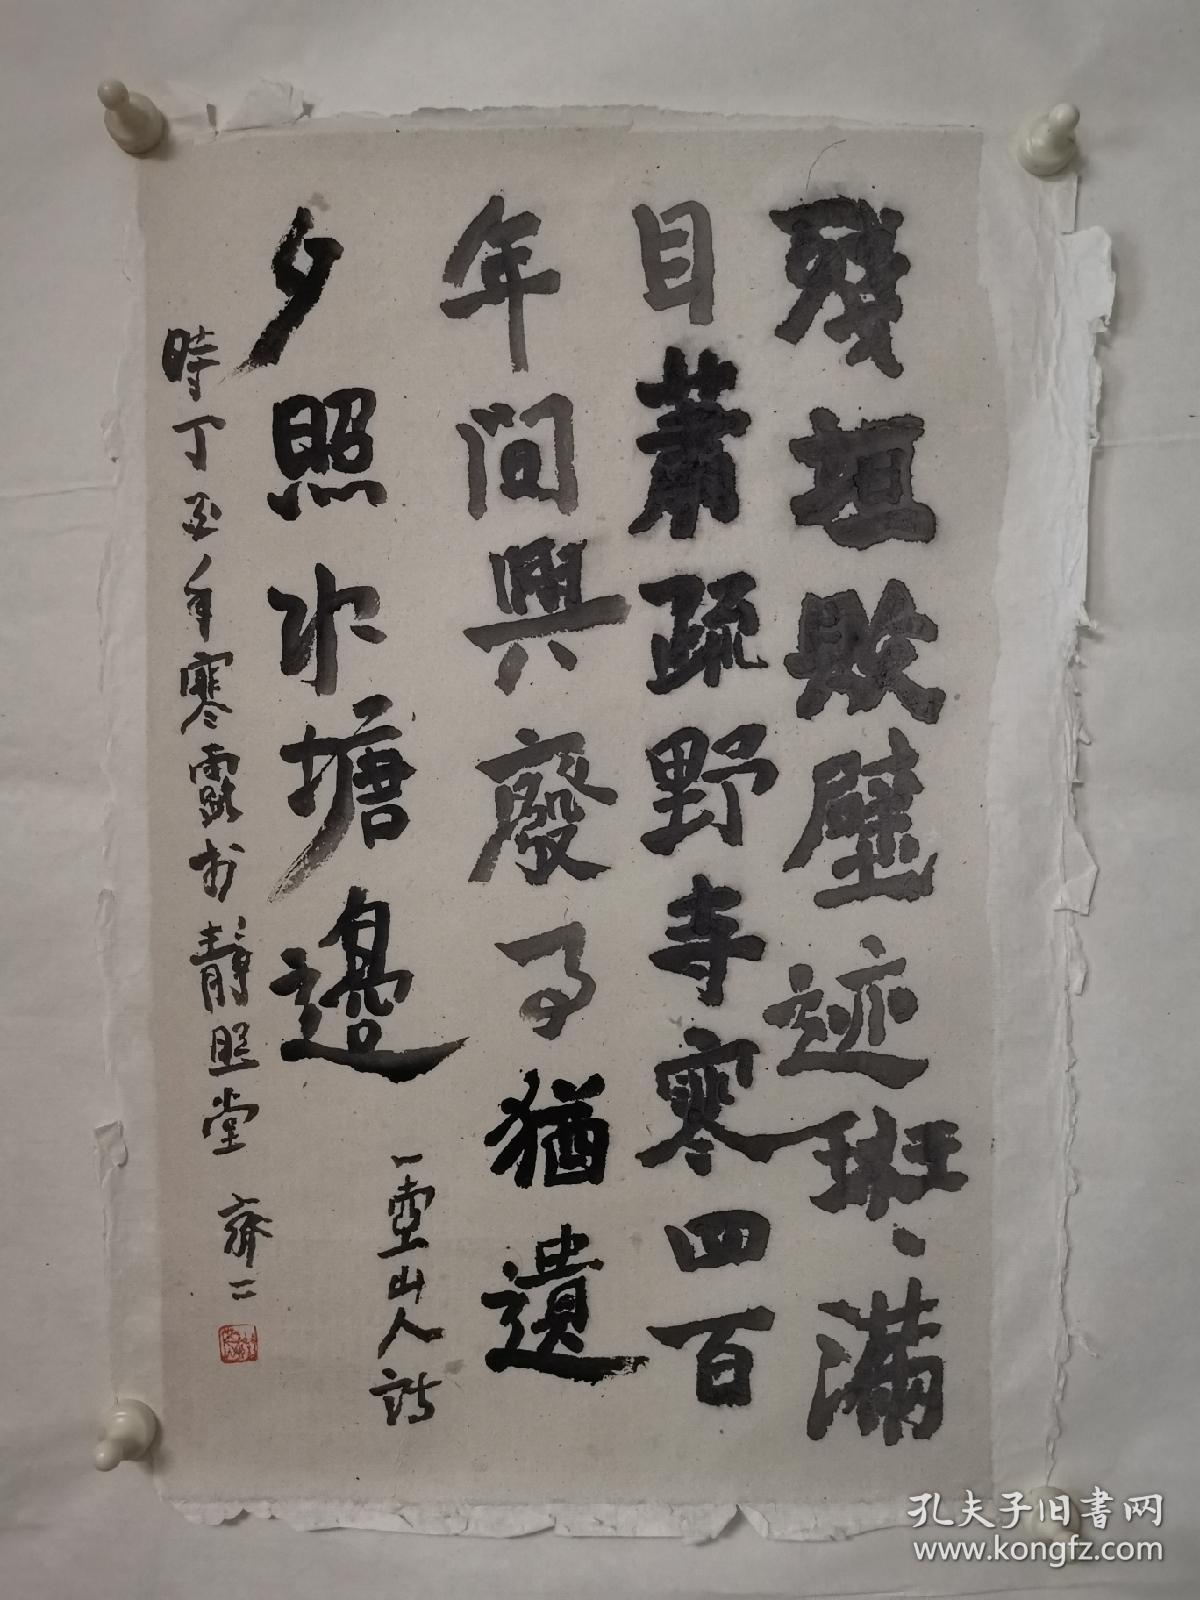 殘垣敗壁迹斑〻滿
目蕭疏野寺寒四百
年間興廢事猶遺
夕照水塘邊
一壺山人詩
時丁丑年寒露於靜照堂 齊二
孔夫子旧书网
www.kongfz.com